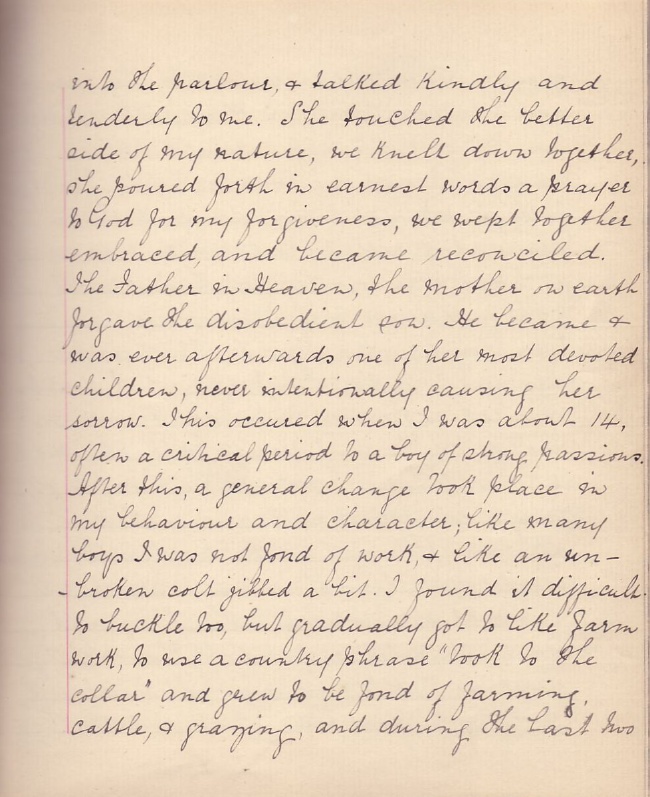 into the parlour, & talked kindly and
tenderly to me. She touched the better
side of my nature, we knelt down together,
she poured forth in earnest words a prayer
to God for my forgiveness, we wept together
embraced, and became reconciled.
The Father in Heaven, the mother on earth
forgave the disobedient son. He became &
was ever afterwards one of her most devoted
children, never intentionally causing her
sorrow. This occured when I was about 14,
often a critical period to a boy of strong passions.
After this, a general change took place in
my behaviour and character; like many
boys I was not fond of work, & like an un-
-broken colt jibbed a bit. I found it difficult
to buckle too, but gradually got to like farm
work, to use a country phrase "took to the
collar" and grew to be fond of farming,
cattle, & grazing, and during the last two